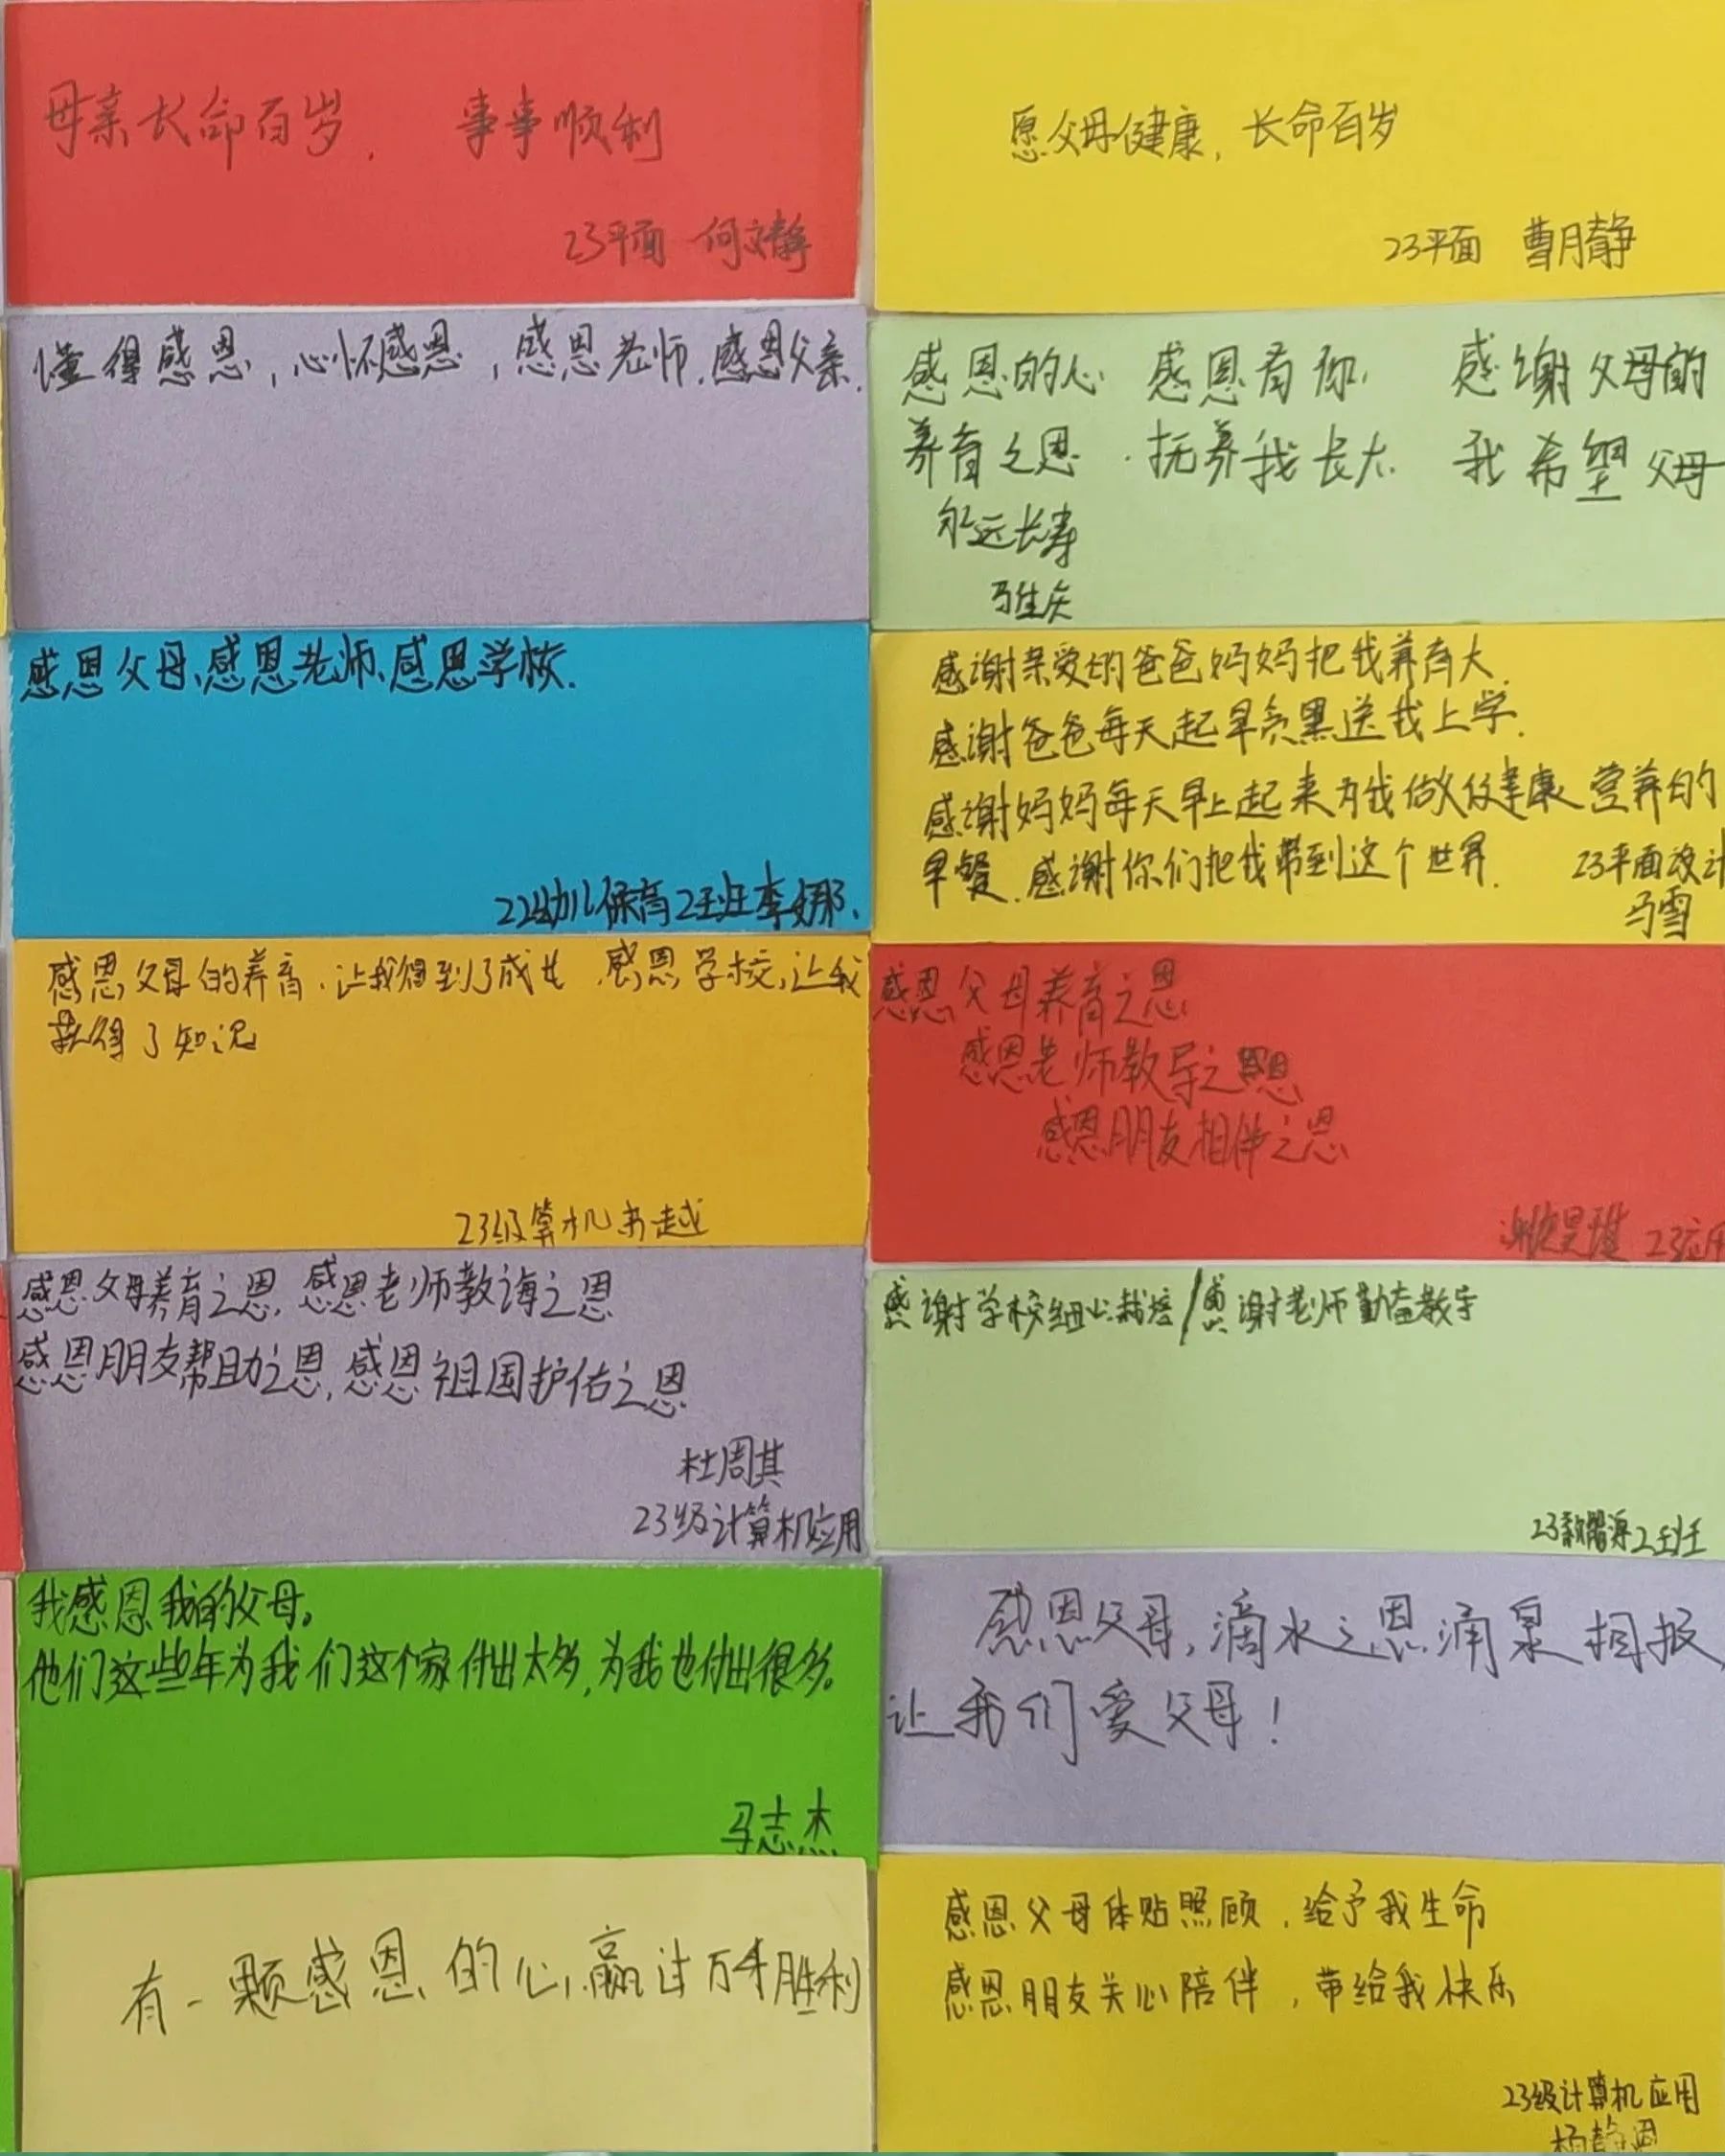 母亲长命百岁, 事事顺利
23平面 何文静
愿父母健康, 长命百岁
23平面 曹月静
懂得感恩, 心怀感恩, 感恩老师, 感恩父亲.
感恩的心 感恩有你, 感谢父母的
养育之恩, 抚养我长大, 我希望父母
永远长寿
马生
感恩父母、感恩老师、感恩学校.
22幼儿保育2班李娜.
感谢亲爱的爸爸妈妈把我养育大.
感谢爸爸每天起早贪黑送我上学.
感谢妈妈每天早上起来为我做健康营养的
早餐.感谢你们把我带到这个世界. 23平面设计
马雪
感恩父母的养育,让我得到了成长 感恩学校,让我
获得了知识
23级算机 越
感恩父母养育之恩
感恩老师教导之恩
感恩朋友相伴之恩
谢 23应用
感恩父母养育之恩, 感恩老师教诲之恩
感恩朋友帮助之恩, 感恩祖国护佑之恩
杜周其
23级计算机应用
感谢学校细心栽培/感谢老师勤奋教学
23新能源2班
我感恩我的父母。
他们这些年为我们这个家付出太多,为我也付出很多。
马志杰
感恩父母, 滴水之恩涌泉相报,
让我们爱父母!
有一颗感恩的心,赢过万千胜利
感恩父母体贴照顾,给予我生命
感恩朋友关心陪伴,带给我快乐
23级计算机应用
杨静